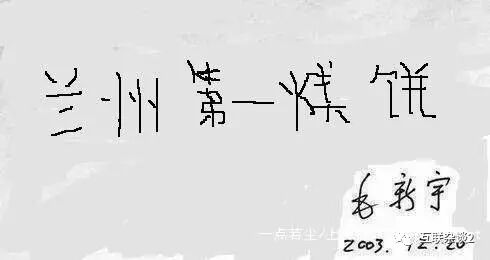 兰州第一烧饼
毛新宇
一点若尘/上
互联杂谈2
2003.12.20